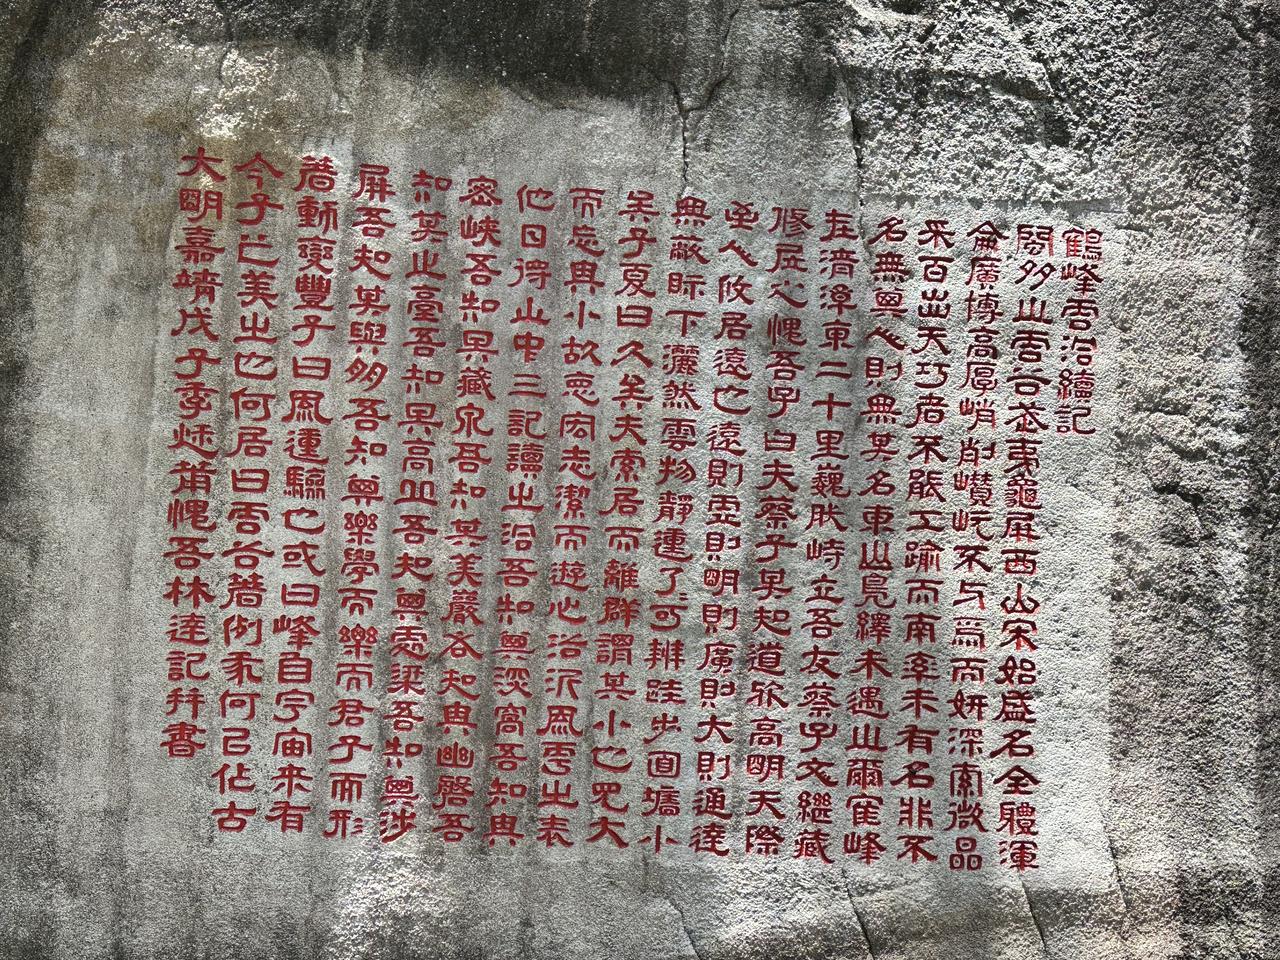 鶴峰雲洽續記
閩多山雲谷武夷龜屏西山宋始盛名全體渾
侖廣博高厚峭削巑岏不与爲而妍深索微品
釆百出天巧者不能工踰而南率未有名非不
名無興人則無其名東山鳧繹未遇止爾寉峰
在漳東二十里巍然峙立吾友蔡子文繼藏
修居之愧吾子曰夫蔡子其知道欤高明天際
人攸居遠也遠則虛則明則廣則大則通達
無敝眎下灑然雲物靜連了可辨跬步圓墻小
矣子夏曰久矣夫索居而離群謂其小也見大
而忘與小故宏志潔而遊心冶沉風雩之表
他日得山中三記讀之洽吾知興淡窩吾知典
密峽吾知其藏泉吾知其美巖谷知典幽磬吾
知其止臺吾知其高吾知梁吾知興涉
屏吾知其與多吾知興樂學而樂而君子而形
著動變豐子曰鳳連驗也或曰峰自宇宙來有
今子亡美出也何居曰雲谷著例豕何已佔古
大明嘉靖戊子季愧吾林逵記并書